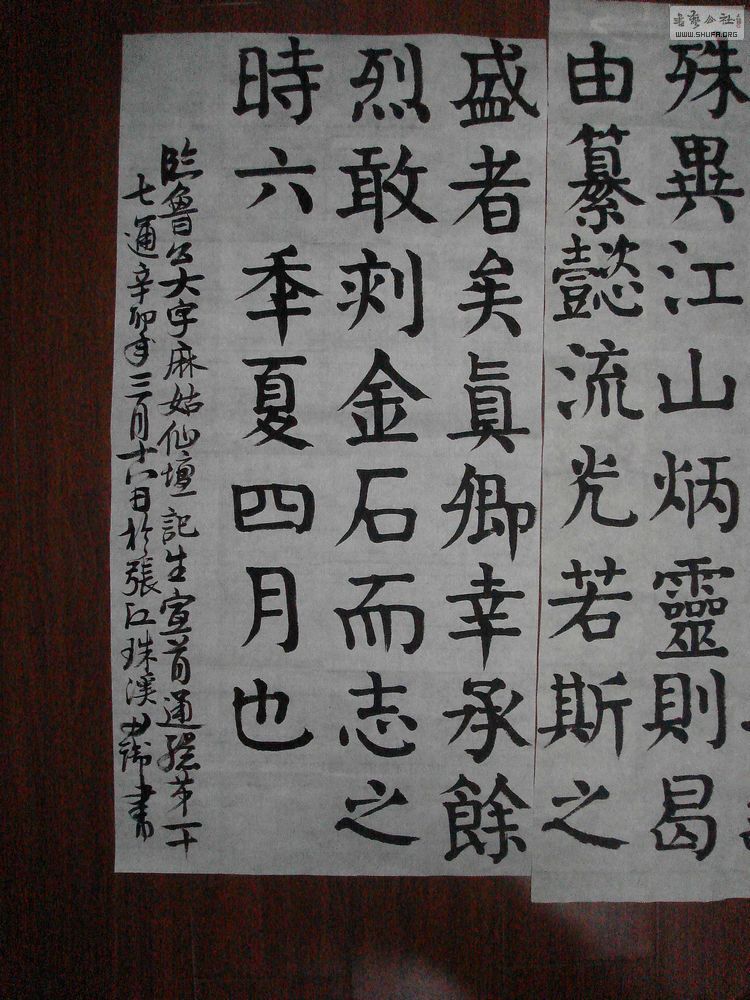 殊異江山炳靈則曷
由纂懿流光若斯之
盛者矣真卿幸承餘
烈敢刻金石而志之
時六年夏四月也
臨魯公大字麻姑仙壇記生宣首通臨第一十
七通辛卯年三月十六日於張江珠溪
書
WWW.SHUFA.ORG